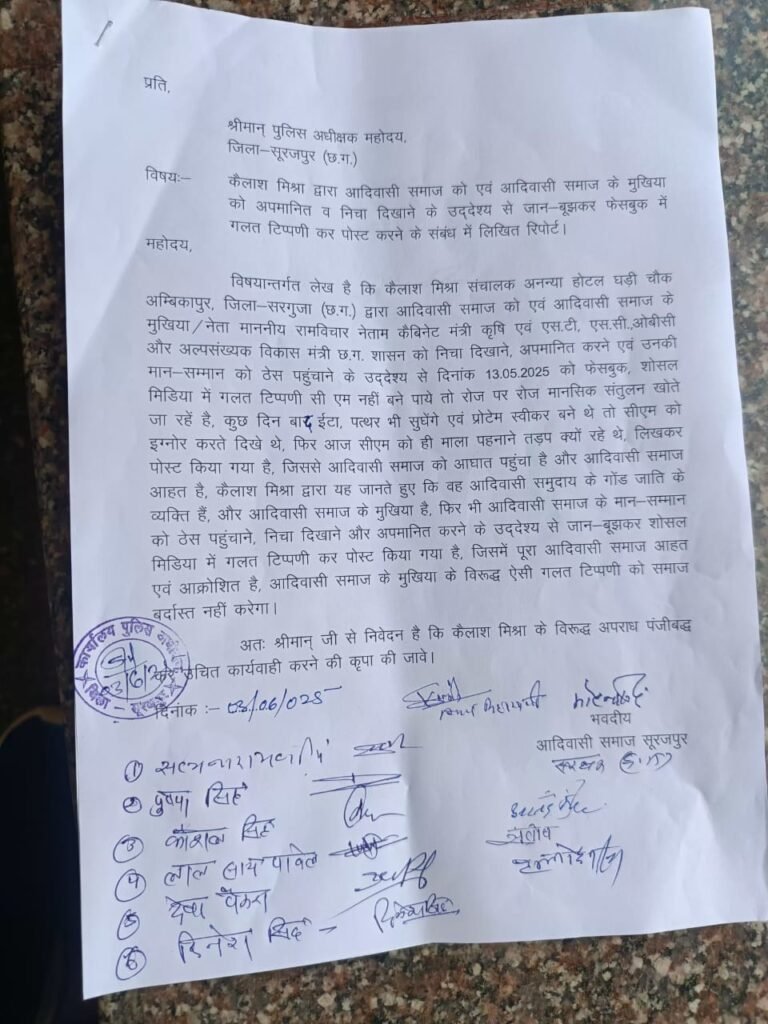 प्रति,
श्रीमान् पुलिस अधीक्षक महोदय,
जिला–सूरजपुर (छ.ग.)
विषयः– कैलाश मिश्रा द्वारा आदिवासी समाज को एवं आदिवासी समाज के मुखिया
को अपमानित व निचा दिखाने के उद्देश्य से जान–बूझकर फेसबुक में
गलत टिप्पणी कर पोस्ट करने के संबंध में लिखित रिपोर्ट।
महोदय,
विषयान्तर्गत लेख है कि कैलाश मिश्रा संचालक अनन्या होटल घड़ी चौक
अम्बिकापुर, जिला–सरगुजा (छ.ग.) द्वारा आदिवासी समाज को एवं आदिवासी समाज के
मुखिया/नेता माननीय रामविचार नेताम कैबिनेट मंत्री कृषि एवं एस.टी, एस.सी.,ओबीसी
और अल्पसंख्यक विकास मंत्री छ.ग. शासन को निचा दिखाने, अपमानित करने एवं उनकी
मान–सम्मान को ठेस पहुंचाने के उद्देश्य से दिनांक 13.05.2025 को फेसबुक, शोसल
मिडिया में गलत टिप्पणी सी एम नहीं बने पाये तो रोज पर रोज मानसिक संतुलन खोते
जा रहें है, कुछ दिन बाद ईटा, पत्थर भी सुघेंगे एवं प्रोटेम स्वीकर बने थे तो सीएम को
इग्नोर करते दिखे थे, फिर आज सीएम को ही माला पहनाने तड़प क्यों रहे थे, लिखकर
पोस्ट किया गया है, जिससे आदिवासी समाज को आघात पहुंचा है और आदिवासी समाज
आहत है, कैलाश मिश्रा द्वारा यह जानते हुए कि वह आदिवासी समुदाय के गोंड जाति के
व्यक्ति हैं, और आदिवासी समाज के मुखिया है, फिर भी आदिवासी समाज के मान–सम्मान
को ठेस पहुंचाने, निचा दिखाने और अपमानित करने के उद्देश्य से जान–बूझकर शोसल
मिडिया में गलत टिप्पणी कर पोस्ट किया गया है, जिसमें पूरा आदिवासी समाज आहत
एवं आक्रोशित है, आदिवासी समाज के मुखिया के विरूद्ध ऐसी गलत टिप्पणी को समाज
बर्दास्त नहीं करेगा।
अतः श्रीमान् जी से निवेदन है कि कैलाश मिश्रा के विरूद्ध अपराध पंजीबद्ध
उचित कार्यवाही करने की कृपा की जावे।
कार्यालय पुलिस
दिनांक :– 03/06/025
भवदीय
आदिवासी समाज सूरजपुर
① 
② पुष्पा सिंह
③ कौशल सिंह
④ लाल साय
⑤ देवा पैकरा
⑥ दिनेश सिंह –